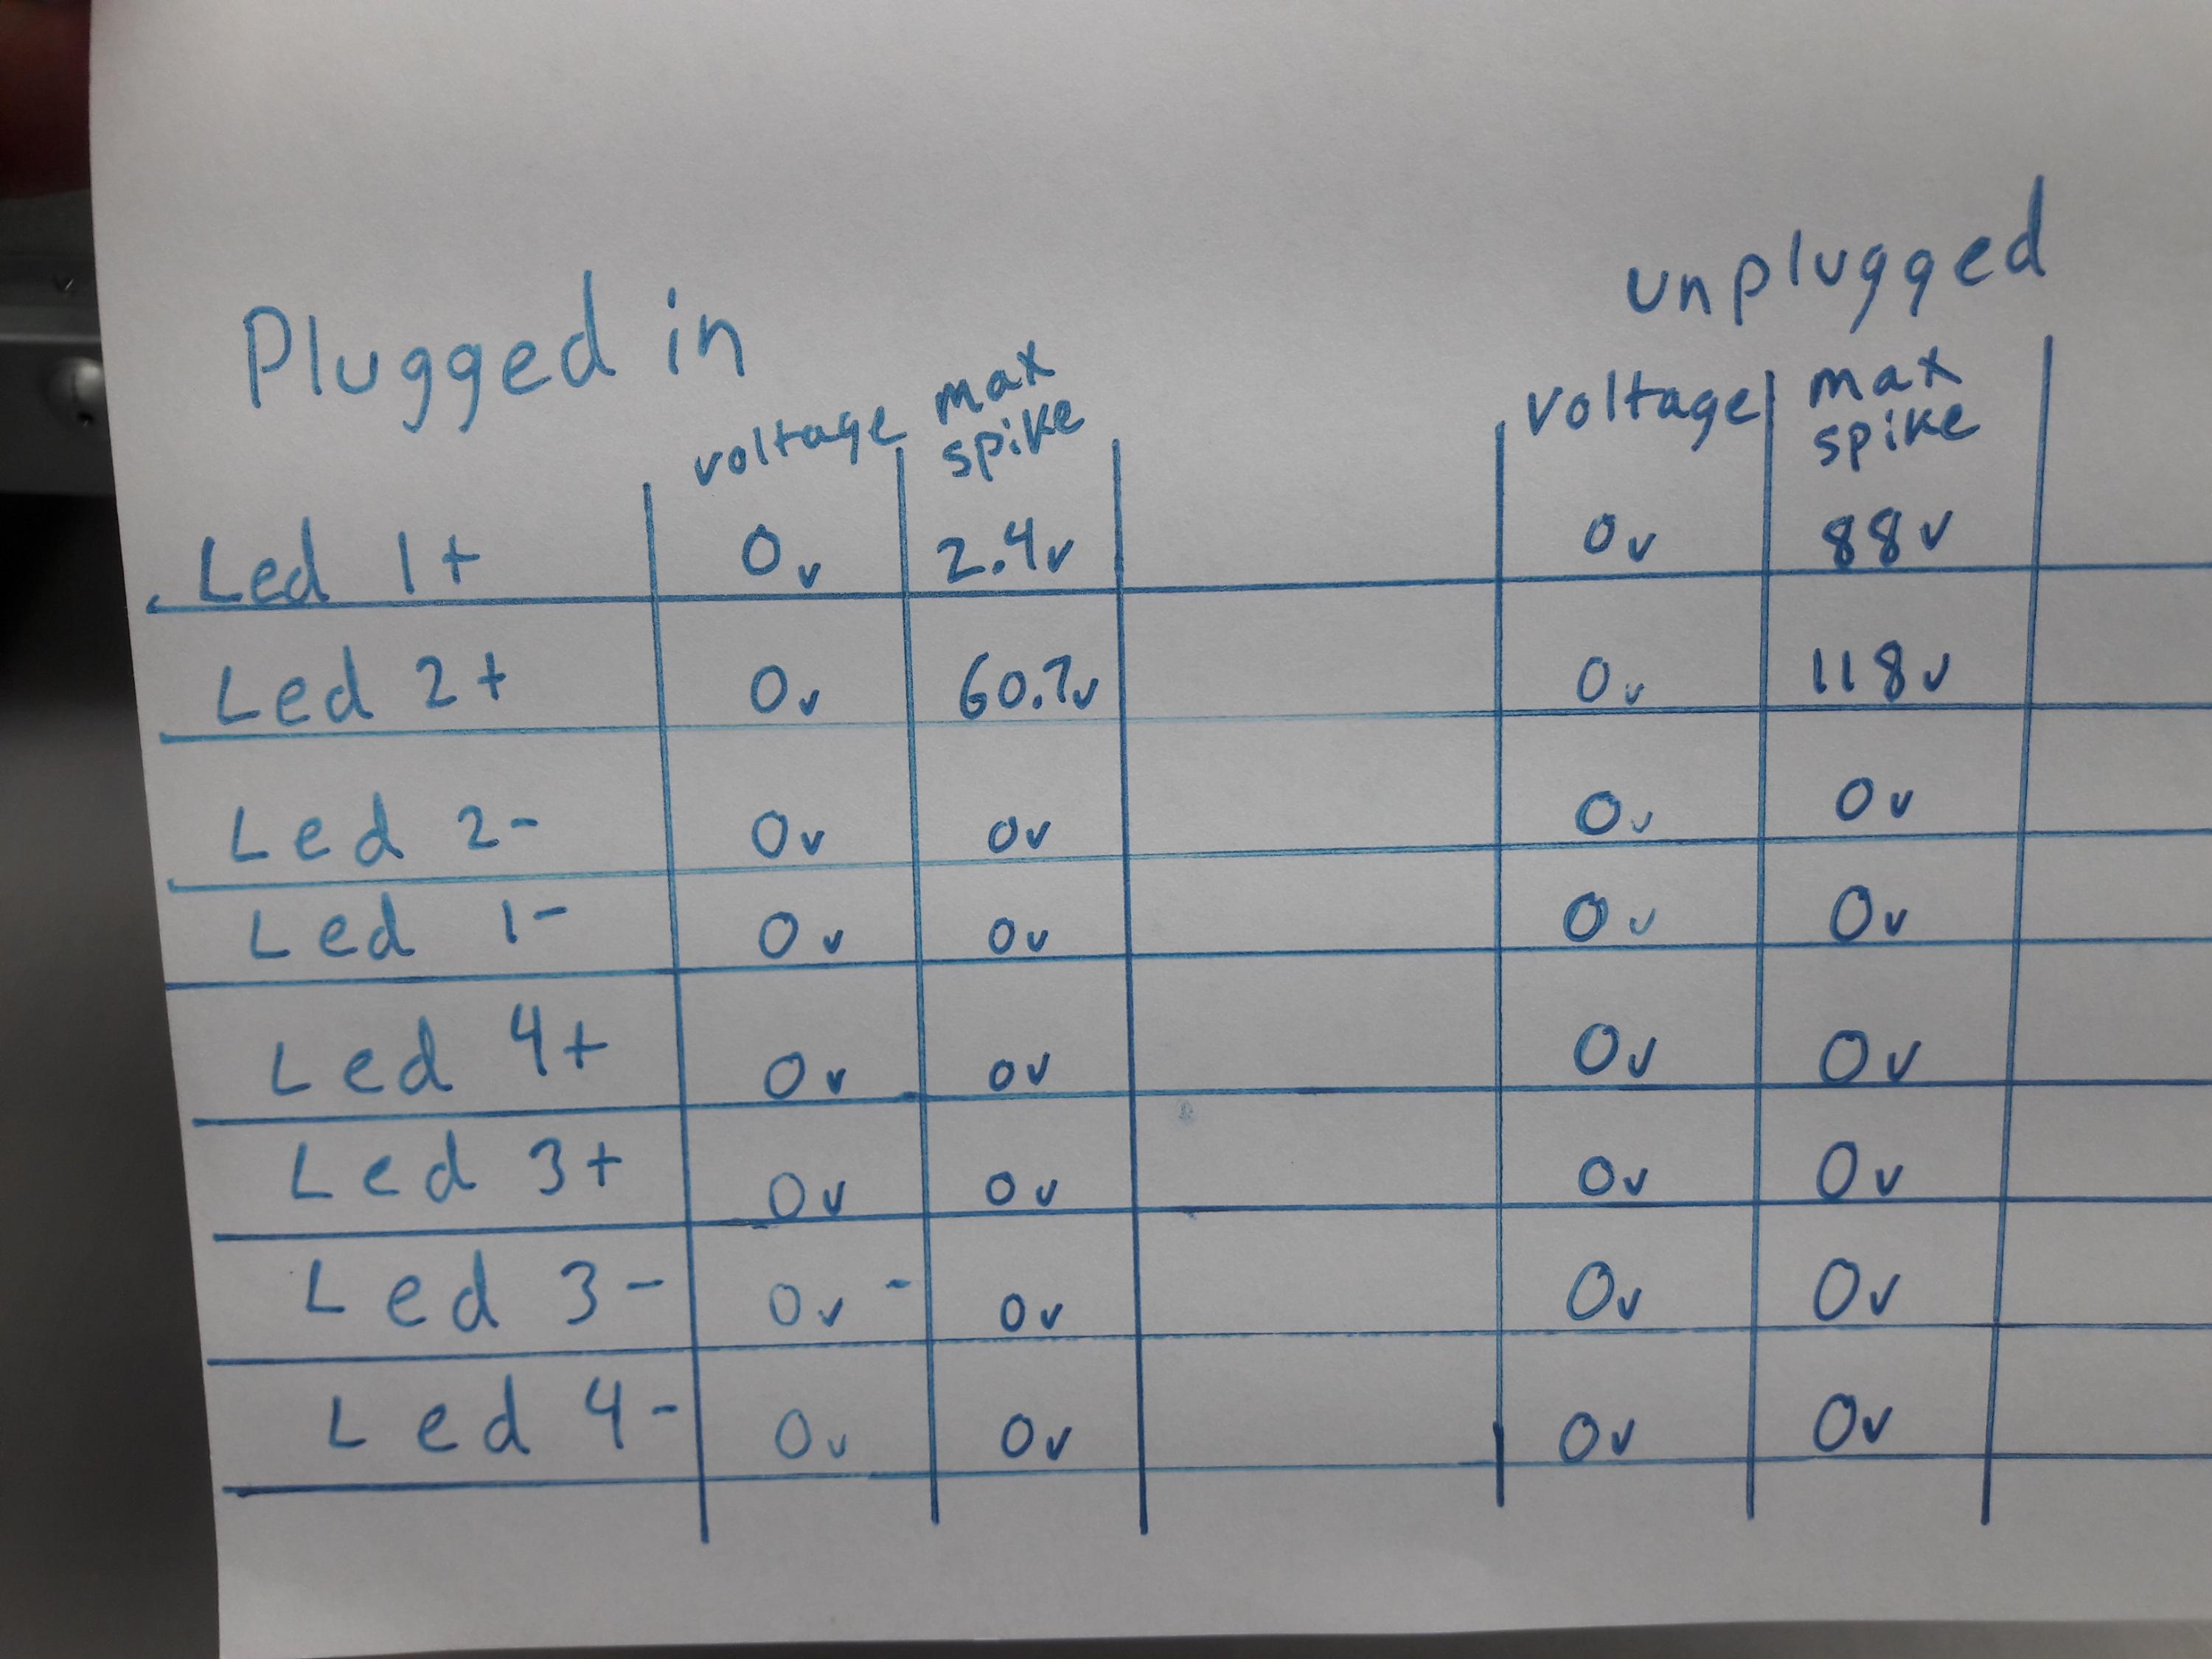 Plugged in unplugged
voltage max spike voltage max spike
Led 1+ 0v 2.4v 0v 88v
Led 2+ 0v 60.7v 0v 118v
Led 2- 0v 0v 0v 0v
Led 1- 0v 0v 0v 0v
Led 4+ 0v 0v 0v 0v
Led 3+ 0v 0v 0v 0v
Led 3- 0v - 0v 0v 0v
Led 4- 0v 0v 0v 0v